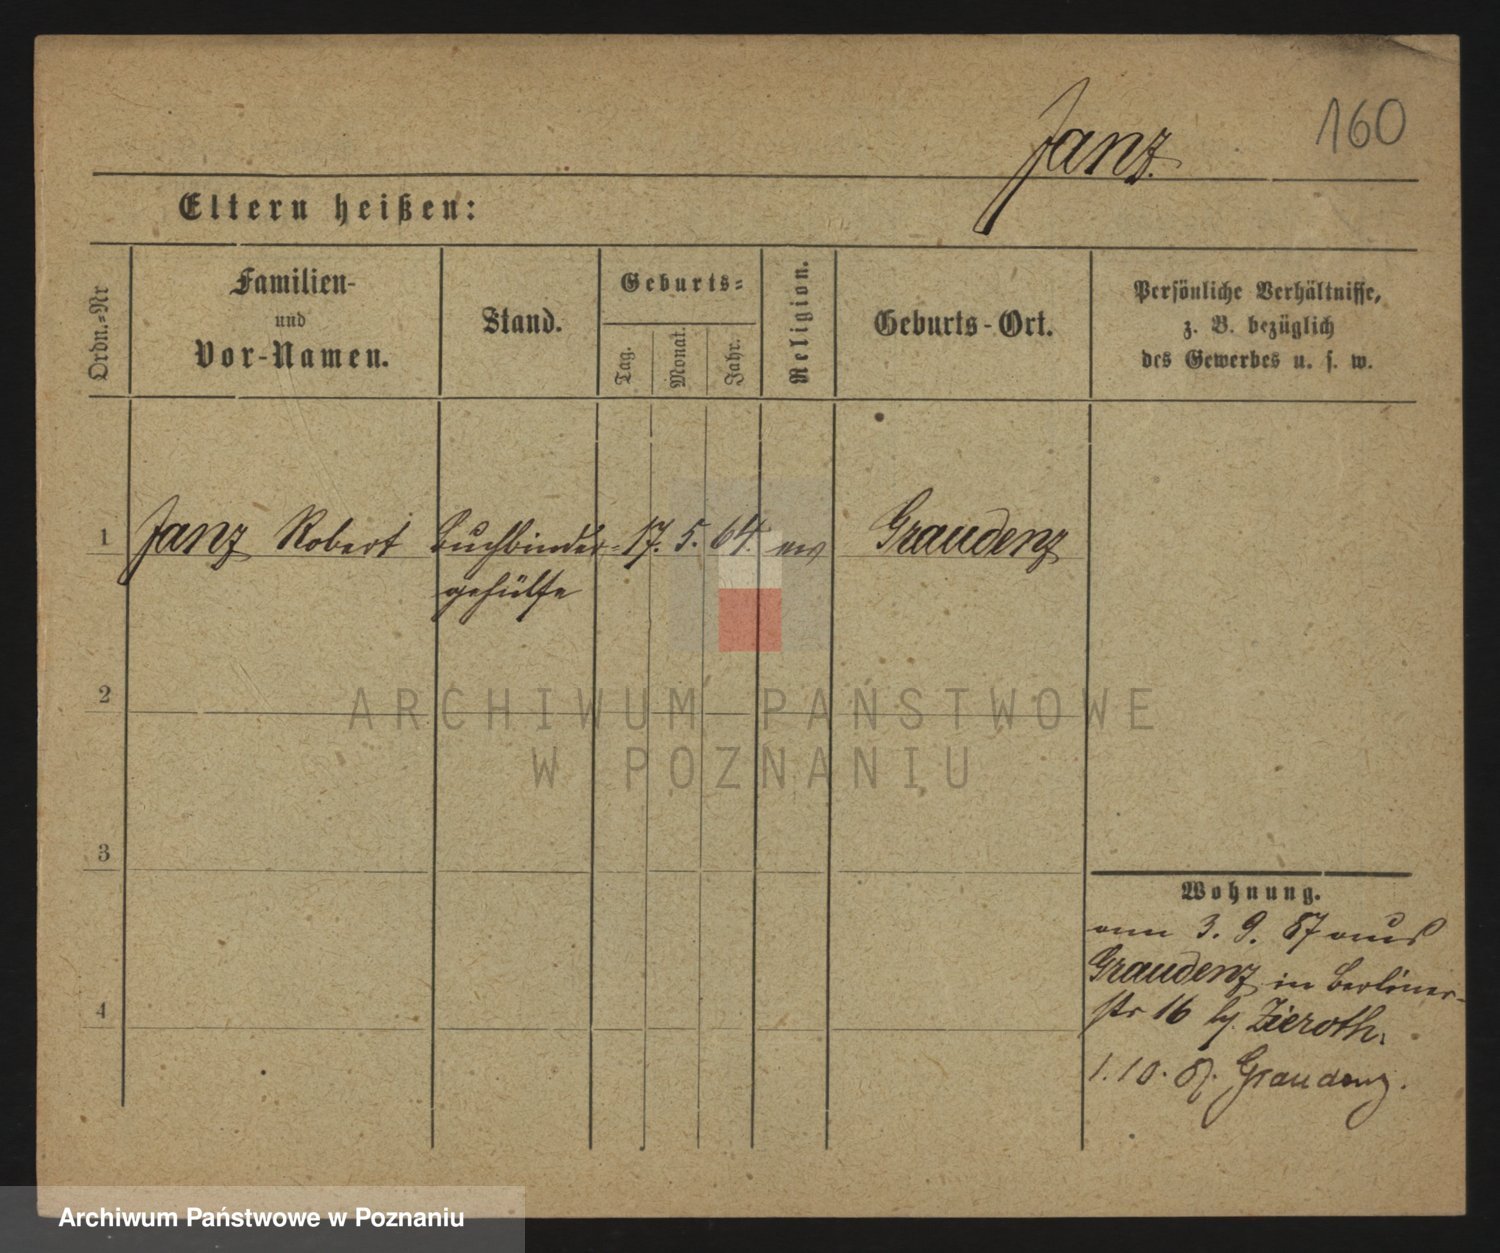 160
Janz.
Eltern heißen:
Ordn.=Nr
Familien-
und
Vor-Namen.
Stand.
Geburts=
Tag.
Monat.
Jahr.
Religion.
Geburts-Ort.
Persönliche Verhältnisse,
z. B. bezüglich
des Gewerbes u. s. w.
1 Janz Robert Buchbinder- 17. 5. 64. ev Graudenz
gehülfe
2
3
4
Wohnung.
3. 9. 87 aus
Graudenz in Berliner-
str 16 Zieroth.
1. 10. 87. Graudenz.
ARCHIWUM PAŃSTWOWE
W POZNANIU
Archiwum Państwowe w Poznaniu